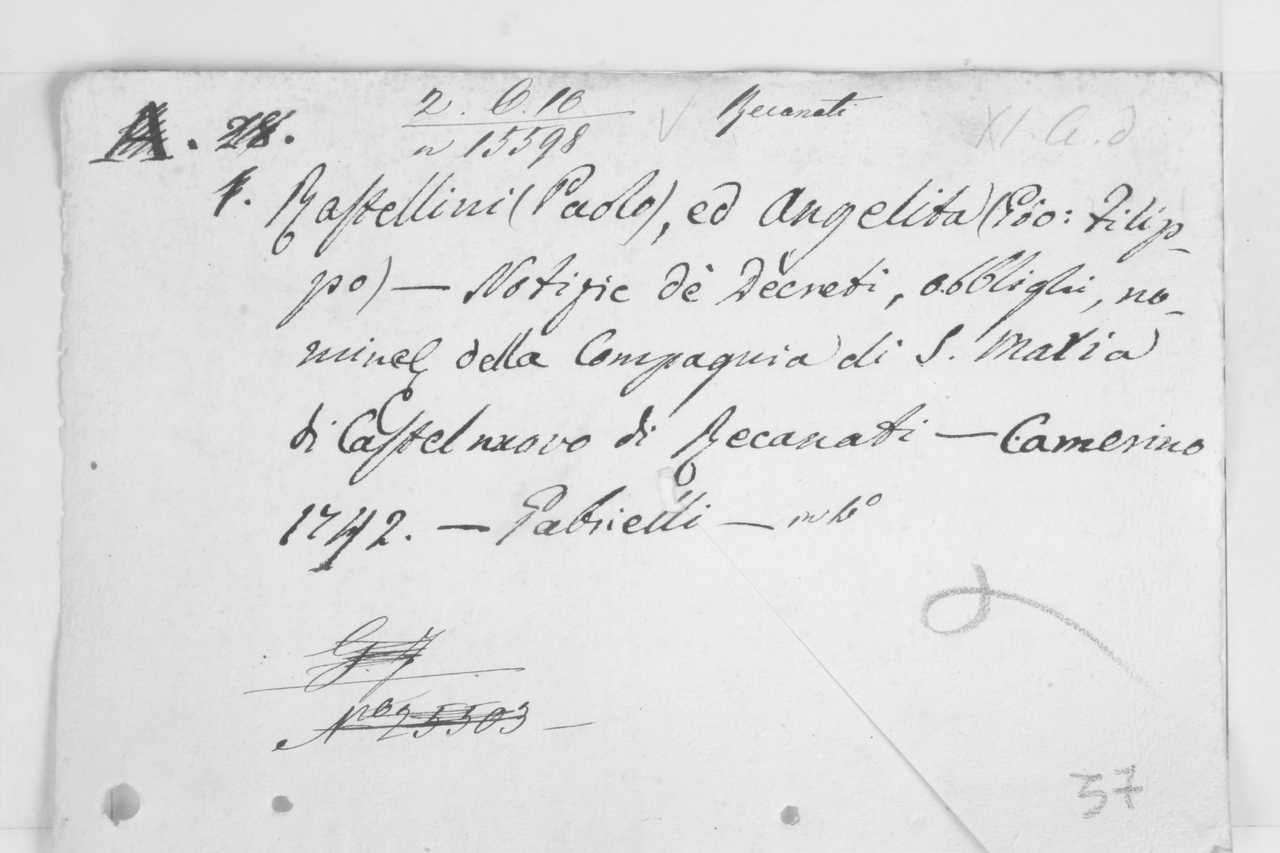 2. 6. 10 Recanati XI. C. d
n 15598
f. Rastellini (Paolo), ed Angelita (Gio: Filip-
po) — Notizie de' Decreti, obblighi, no-
mine della Compagnia di S. Maria
di Castelnuovo di Recanati — Camerino
1742. — Gabrielli — in 4º
Nro 25503
37